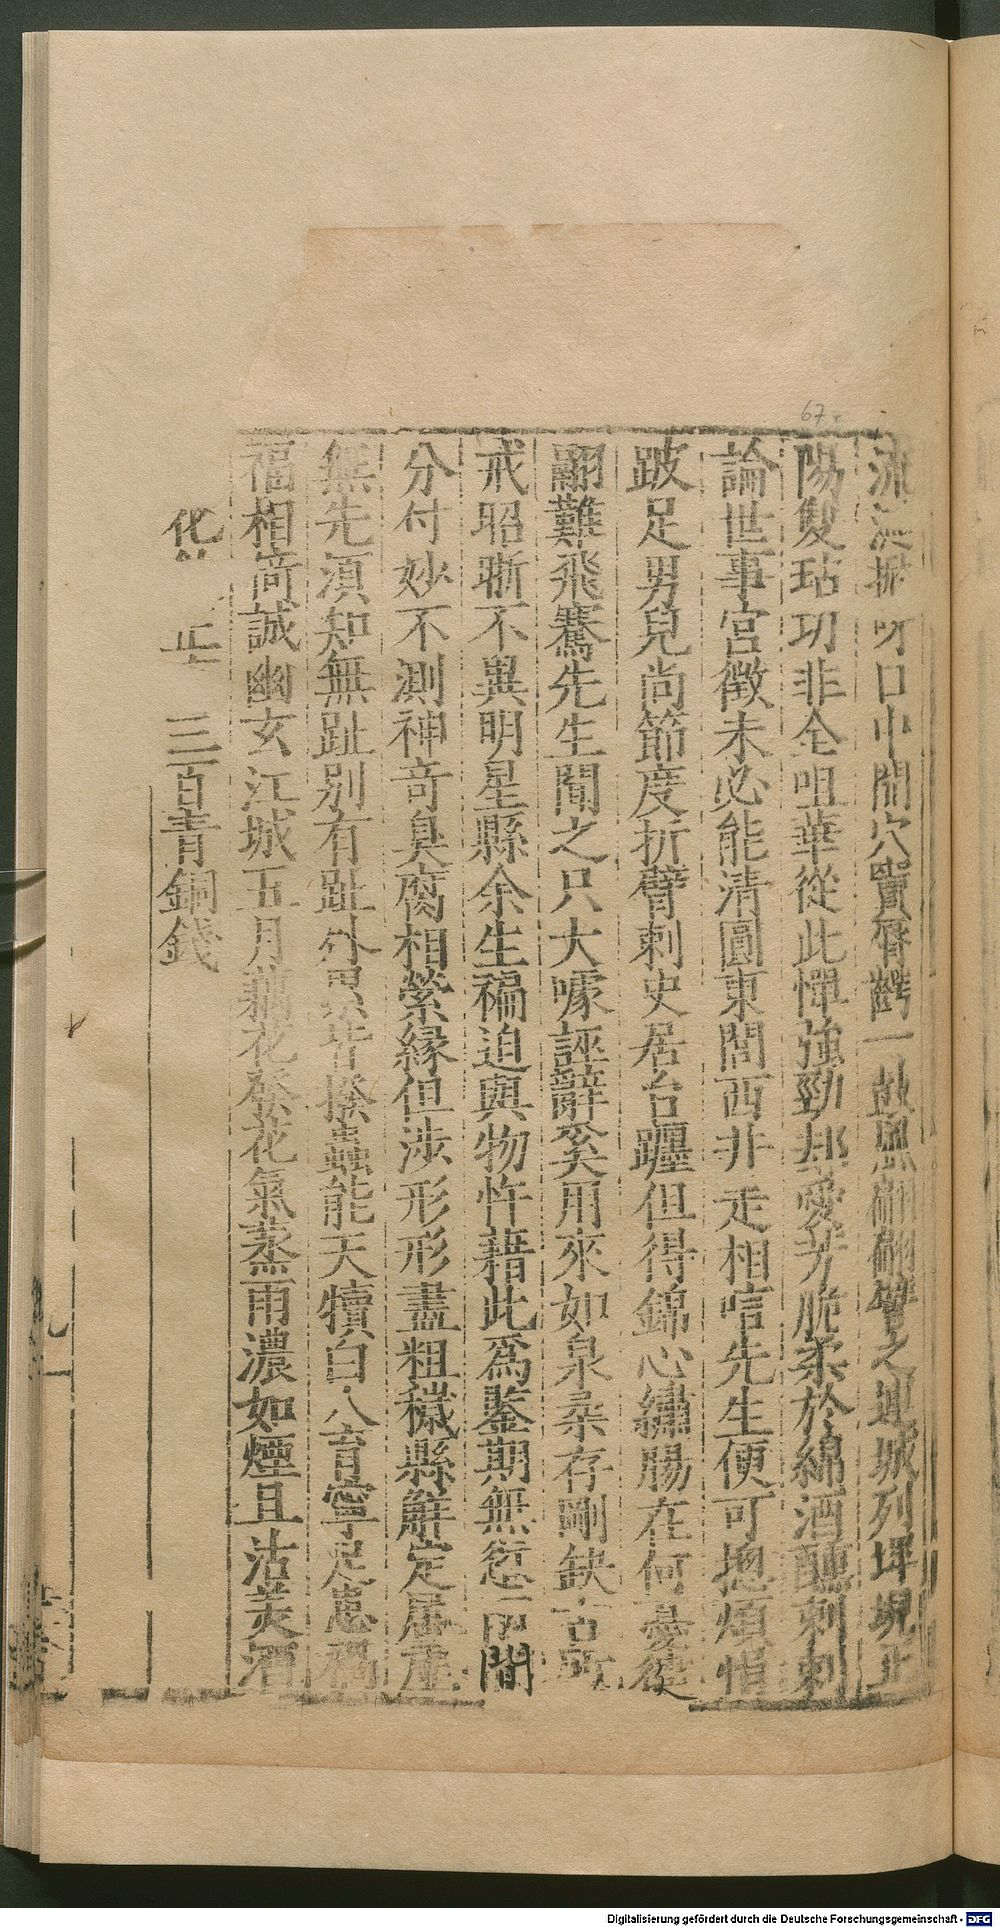 67
口中間穴竇齊齶一鼓與翩翩譬之連城列堞堄正
陽雙玷功非全咀華從此憚強勁却愛芳脆柔於綿酒醺刺刺
論世事宮徵未必能清圓東閣西非走相唁先生便可摠煩悁
跛足男兒尚節度折臂刺史居台躔但得錦心繡腸在何憂從
翮難飛騫先生聞之只大噱誣辭奚用來如泉柔存剛缺古所
戒昭晰不異明星縣余生褊迫與物忤藉此爲鑒期無愆兩間
分付妙不測神奇臭腐相縈緣但涉形形盡粗穢縣解定屬虛
無先須知無趾別有趾外累皆撥蟲能天犢白人育寧足患禍
福相倚誠幽玄江城五月藕花發花氣蒸雨濃如煙且沽美酒
三百青銅錢
Digitalisierung gefördert durch die Deutsche Forschungsgemeinschaft - DFG